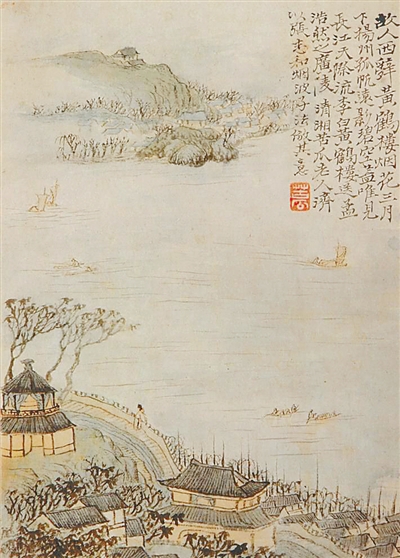 故人西辭黃鶴樓烟花三月
下楊州孤帆遠影碧空盡唯見
長江天際流李白黃鶴樓送孟
浩然之廣陵 清湘苦瓜老人濟
以張志和烟波子法倣其意